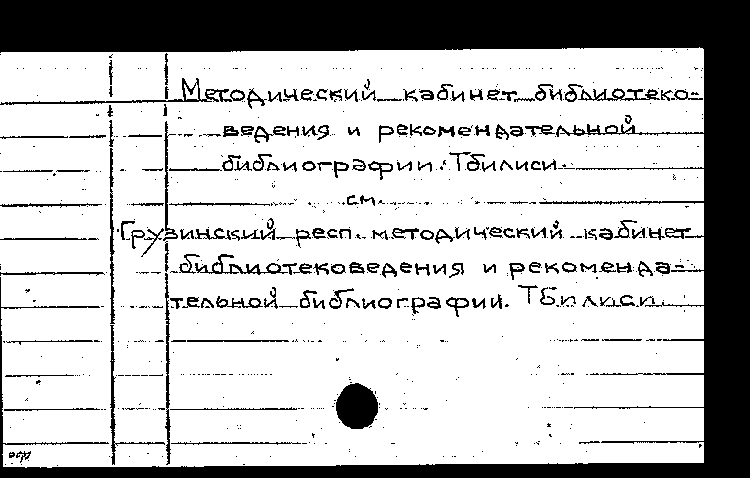 Методический кабинет библиотеко-
ведения и рекомендательной
библиографии. Тбилиси.
см.
Грузинский респ. методический кабинет
библиотековедения и рекоменда-
тельной библиографии. Тбилиси.